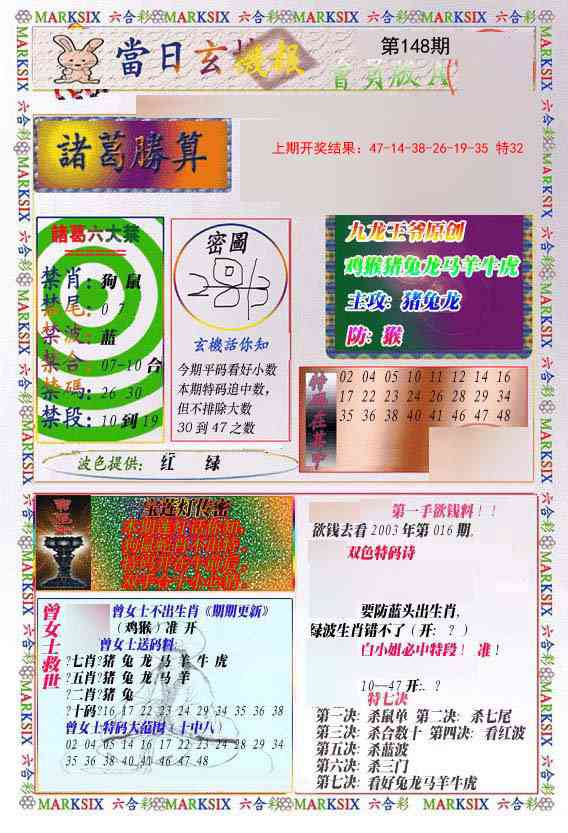 MARKSIX 六合彩 MARKSIX 六合彩 MARKSIX 六合彩 MARKSIX 六合彩
當日玄機報
第148期
會員版A
諸葛勝算
上期开奖结果：47-14-38-26-19-35 特32
諸葛六大禁
禁肖：狗 鼠
禁尾：0 7
禁波：蓝
禁合：07-10 合
禁碼：26 30
禁段：10 到 19
密圖
玄機活你知
今期平码看好小数
本期特码追中数，
但不排除大数
30 到 47 之数
九龙王爷原创
鸡猴猪兔龙马羊牛虎
主攻：猪兔龙
防：猴
特码在其中
02 04 05 10 11 12 14 16
17 22 23 24 26 28 29 34
35 36 38 40 41 46 47 48
波色提供： 红 绿
宝莲灯传密
第一手欲钱料！！
欲钱去看 2003 年第 016 期。
双色特码诗
要防蓝头出生肖，
绿波生肖错不了（开：？）
白小姐必中特段！ 准！
10—47 开：．？
特七决
第一决：杀鼠单 第二决：杀七尾
第三决：杀合数十 第四决：看红波
第五决：杀蓝波
第六决：杀三门
第七决：看好兔龙马羊牛虎
曾女士救世
曾女士不出生肖《期期更新》
（鸡猴）准 开
曾女士送码料
?七肖?猪 兔 龙 马 羊 牛 虎
?五肖?猪 兔 龙 马 羊
?二肖?猪 兔
?十码?16 17 22 23 24 29 34 35 36 38
曾女士特码大范围（十中八）
02 04 05 14 16 17 22 23 24 28 29 34
35 36 38 40 41 46 47 48
MARKSIX 六合彩 MARKSIX 六合彩 MARKSIX 六合彩 MARKSIX 六合彩